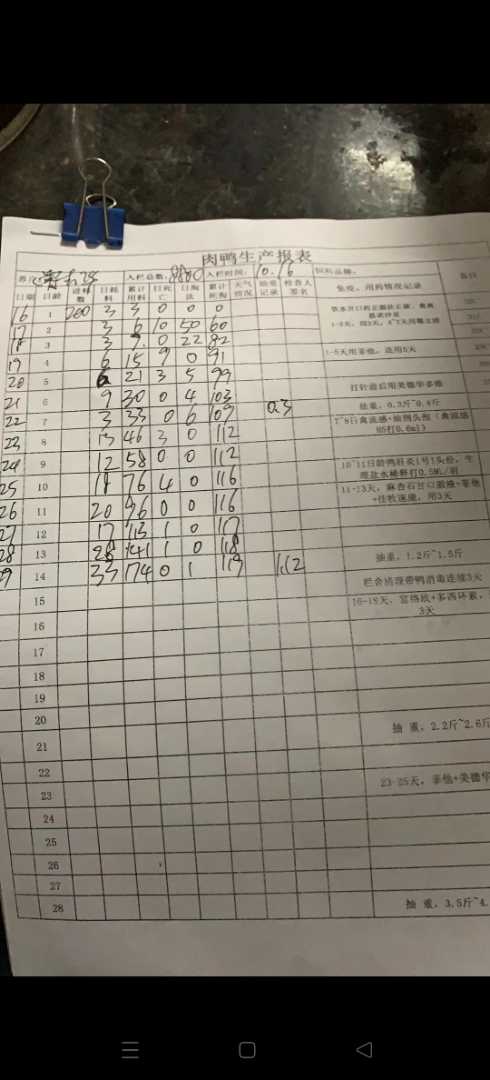 肉鸭生产报表
入栏总数: 8880 入栏时间: 10.16 饲料品种: 备注
日期 日龄 进料数 日耗料 累计用料 日死亡 日淘汰 累计死淘 天气情况 抽重记录 检查人签名 免疫、用药情况记录
16 1 200 3 3 0 0 0
17 2 3 6 10 50 60
18 3 3 9 0 22 82
19 4 6 15 9 0 91 1-5天用多他,连用5天
20 5 6 21 3 5 99 打针前后用美德华多维
21 6 9 30 0 4 103 抽重,0.3斤~0.4斤
22 7 3 33 0 6 109 0.3 7~8日禽流感+给倒头孢(禽流感H5打0.6ml)
23 8 13 46 3 0 112
24 9 12 58 0 0 112 10~11日龄鸭肝炎1号1头份,生理盐水稀释打0.5ML/羽
25 10 18 76 4 0 116 11-13天,麻杏石甘口服液+
26 11 20 96 0 0 116 用3天
27 12 17 113 1 0 117
28 13 28 141 1 0 118 抽重,1.2斤~1.5斤
29 14 33 174 0 1 119 1.12 栏舍清理带鸭消毒连续3天
15 16-18天, +多西环素,3天
16
17
18
19
20
21 抽 重,2.2斤~2.6斤
22
23 23-25天,多他+美德华
24
25
26
27
28 抽 重,3.5斤~4.